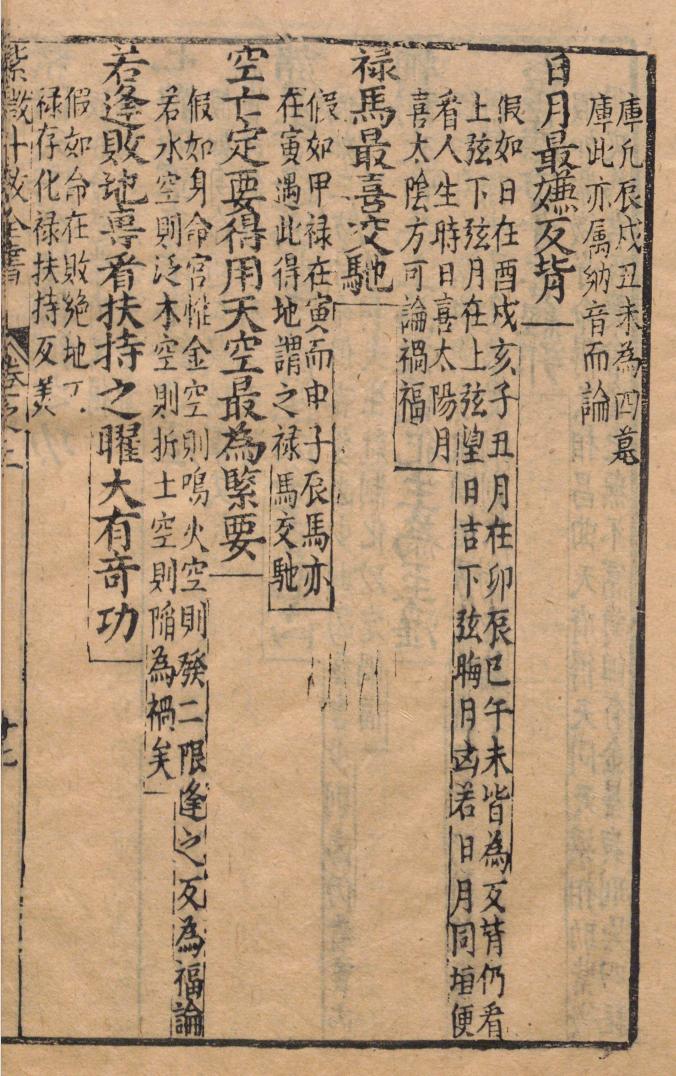 庫凡辰戌丑未為四墓
庫此亦属納音而論
日月最嫌反背
假如日在酉戌亥子丑月在卯辰巳午未皆為反背仍看
上弦下弦月在上弦望日吉下弦晦月凶若日月同垣便
看人生時日喜太陽月
喜太陰方可論禍福
禄馬最喜交馳
假如甲禄在寅而申子辰馬亦
在寅遇此得地謂之禄馬交馳
空亡定要得用天空最為緊要
假如身命宮惟金空則鳴火空則發二限逢之反為福論
若水空則泛木空則折土空則陷為禍矣
若逢敗地專看扶持之曜大有竒功
假如命在敗絶地
禄存化禄扶持反美